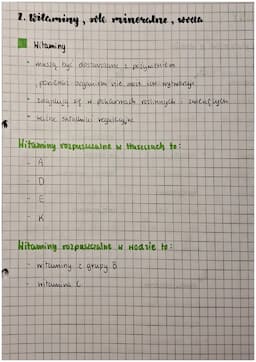 2. Witaminy, sole mineralne, woda
Witaminy
• muszą być dostarczane z pożywieniem,
ponieważ organizm nie może ich wytworzyć
• znajdują się w pokarmach roślinnych i zwierzęcych
• ważne składniki regulacyjne
Witaminy rozpuszczalne w tłuszczach to:
- A
- D
- E
- K
Witaminy rozpuszczalne w wodzie to:
- witaminy z grupy B
- witamina C